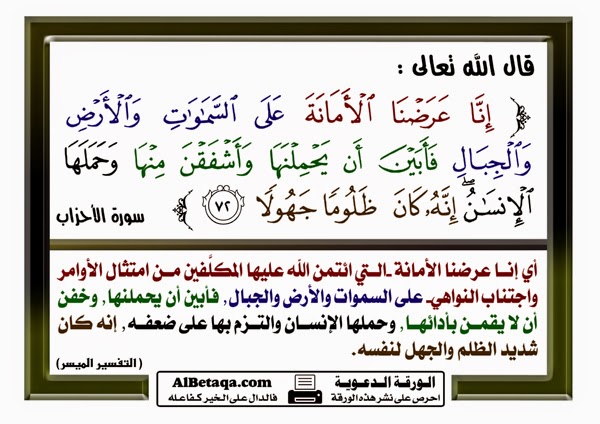 قال الله تعالى :
﴿ إِنَّا عَرَضْنَا ٱلْأَمَانَةَ عَلَى ٱلسَّمَٰوَٰتِ وَٱلْأَرْضِ
وَٱلْجِبَالِ فَأَبَيْنَ أَن يَحْمِلْنَهَا وَأَشْفَقْنَ مِنْهَا وَحَمَلَهَا
ٱلْإِنسَٰنُ ۖ إِنَّهُۥ كَانَ ظَلُومًا جَهُولًا ٧٢ ﴾ سورة الأحزاب
أي إنـا عرضنا الأمانة -التي ائتمن الله عليها المكلَّفين من امتثال الأوامر
واجتناب النواهي- على السموات والأرض والجبال , فأبين أن يحملنها , وخفن
أن لا يقمن بأدائها , وحملها الإنسان والتزم بها على ضعفه , إنه كان
شديد الظلم والجهل لنفسه.
( التفسير الميسر )
الورقة الدعوية
احرص على نشر هذه الورقة
AlBetaqa.com
فالدال على الخير كفاعله